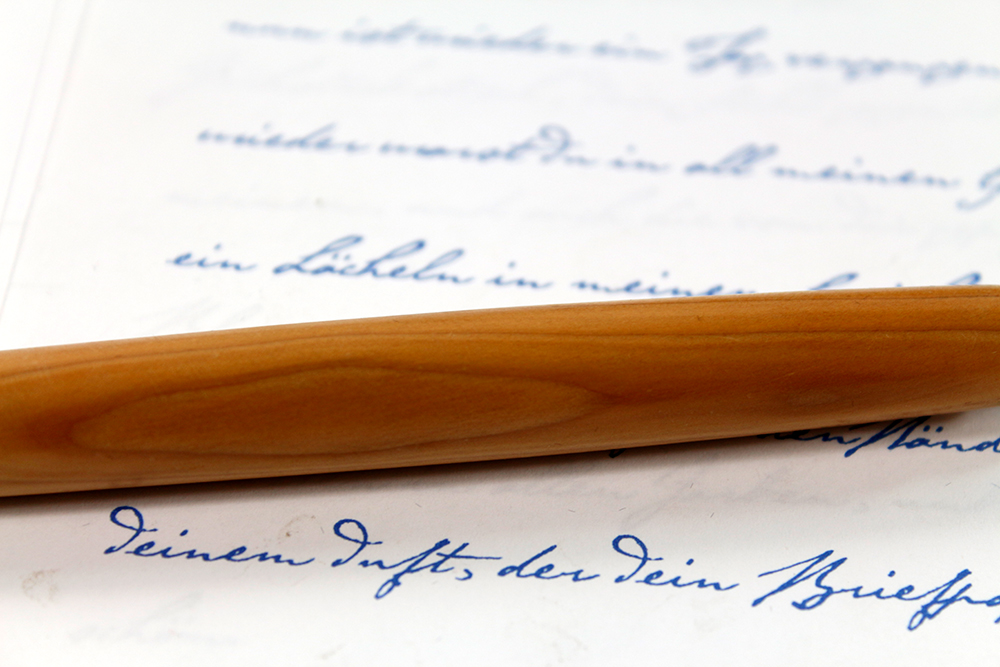 nun ist wieder ein Tag vergangen
wieder warst Du in all meinen
ein Lächeln in meinen
den Händ
Deinem Duft, der Dein Briefpa